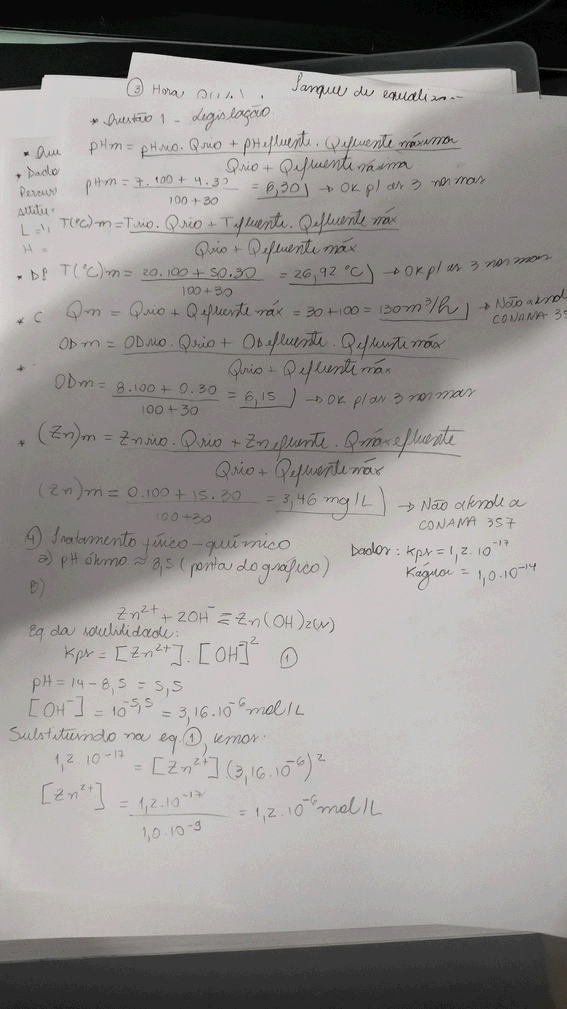 ③ Hora
Tanque de equaliz
* Questão 1 - Legislação
* Qu
pHm = pHrio . Qrio + pHefluente . Qefluente máxima
Qrio + Qefluente máxima
* Dado
Percur
pHm = 7.100 + 4.30 = 6,30 → OK p/ as 3 normas
100 + 30
L =
T(°C)m = Trio . Qrio + Tefluente . Qefluente máx
Qrio + Qefluente máx
H =
* DP
T(°C)m = 20.100 + 50.30 = 26,92 °C → OK p/ as 3 normas
100+30
* C
Qm = Qrio + Qefluente máx = 30 + 100 = 130 m³/h → Não atende
CONAMA 35
ODm = ODrio . Qrio + ODefluente . Qefluente máx
Qrio + Qefluente máx
*
ODm = 8.100 + 0.30 = 6,15 → OK p/ as 3 normas
100 + 30
*
(Zn)m = Znrio . Qrio + Znefluente . Qmáxefluente
Qrio + Qefluente máx
(Zn)m = 0.100 + 15.30 = 3,46 mg/L → Não atende a
100+30
CONAMA 357
4) Tratamento físico-químico
a) pH ótimo ≈ 8,5 (ponta do gráfico)
Dados: Kps = 1,2 . 10⁻¹⁷
Kágua = 1,0.10⁻¹⁴
B)
Zn²⁺ + 2OH⁻ ⇌ Zn(OH)₂(s)
Eq da solubilidade:
Kps = [Zn²⁺] . [OH⁻]² ①
pH = 14 - 8,5 = 5,5
[OH⁻] = 10⁻⁵,⁵ = 3,16.10⁻⁶ mol/L
Substituindo na eq. ①, temos:
1,2.10⁻¹⁷ = [Zn²⁺] (3,16.10⁻⁶)²
[Zn²⁺] = 1,2.10⁻¹⁷ = 1,2.10⁻⁶ mol/L
1,0.10⁻⁹